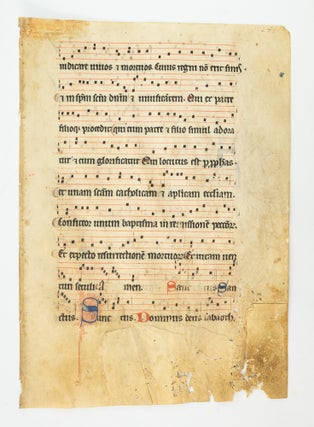 iudicare uiuos & mortuos Cuius regni nō erit finis
& in spm scm dnm & uiuificātem. Qui ex patre
filioq; procedit qui cum patre & filio simul adora
tur & cum glorificatur Qui locutus est p prophas
et unam scam catholicam & aplicam ecclsiam.
Confiteor unum baptisma in remissionē peccōr.
Et expecto resurrectionē mortuor Et uitam uen
turi seculi A men. Sanc tus San
ctus. Sanc tus. Dominus deus sabaoth.